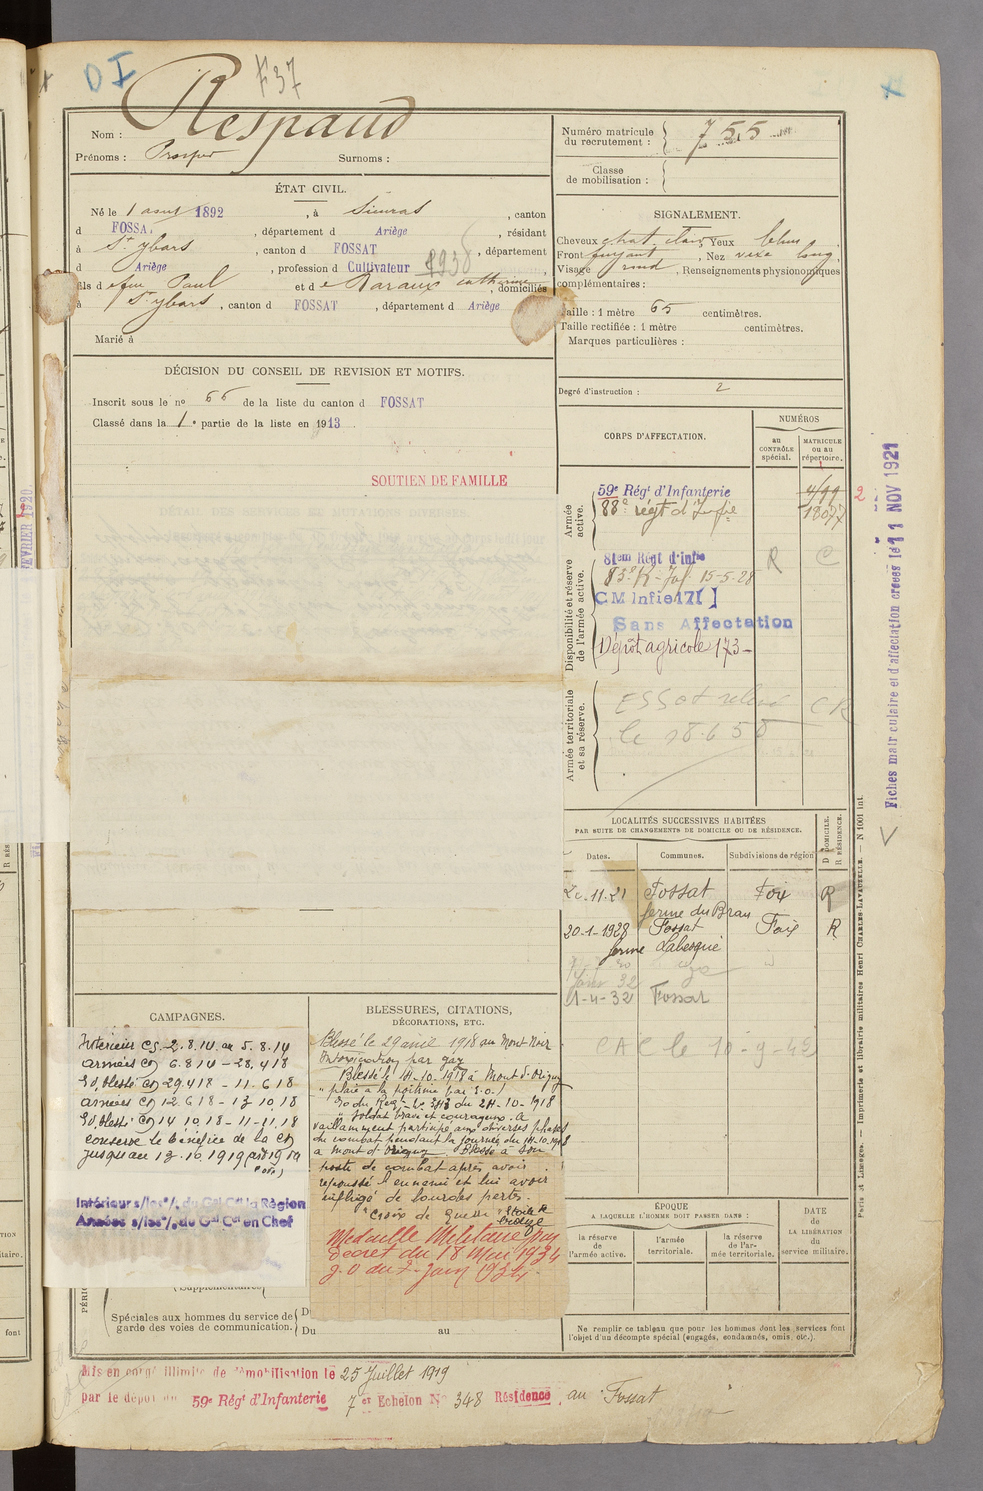 D I
F37
Nom : Respaud
Prénoms : Prosper Surnoms :
Numéro matricule du recrutement : 755
Classe de mobilisation :
ÉTAT CIVIL.
Né le 1 aout 1892, à Sieuras, canton
d FOSSAT, département d Ariège, résidant
à St ybars, canton d FOSSAT, département
d Ariège, profession d Cultivateur
fils d e feu Paul et d e Raraux catherine, domiciliés
à St ybars, canton d FOSSAT, département d Ariège
Marié à
SIGNALEMENT.
Cheveux chat. clair Yeux bleus,
Front fuyant, Nez vexe long,
Visage rond, Renseignements physionomiques
complémentaires :
Taille : 1 mètre 65 centimètres.
Taille rectifiée : 1 mètre centimètres.
Marques particulières :
Degré d'instruction : 2
DÉCISION DU CONSEIL DE REVISION ET MOTIFS.
Inscrit sous le no 66 de la liste du canton d FOSSAT
Classé dans la 1e partie de la liste en 1913.
SOUTIEN DE FAMILLE
CORPS D'AFFECTATION.
NUMÉROS
au CONTRÔLE spécial.
MATRICULE ou au répertoire.
Armée active.
59e Régt d'Infanterie
88e régt d'Infie 18077
Disponibilité et réserve de l'armée active.
81em Régt d'infie R C
83e R. Inf. 15-5-28
C M Infie 171
Sans Affectation
Dépôt agricole 173
Armée territoriale et sa réserve.
le 18-6-50
Fiches matriculaire et d'affectation créées le 11 NOV 1921
LOCALITÉS SUCCESSIVES HABITÉES
PAR SUITE DE CHANGEMENTS DE DOMICILE OU DE RÉSIDENCE.
Dates. Communes. Subdivisions de région D DOMICILE. R RÉSIDENCE.
11-21 Fossat Foix R
ferme du Brau
20-1-1928 Fossat Foix R
ferme Labesque
1-4-32 Fossat
CAC le 10-9-42
CAMPAGNES.
Intérieur CS. 2.8.14 au 5.8.14
armées CD 6.8.14 - 28.4.18
Ev, blessé CD 29.4.18 - 11.6.18
armées CD 12.6.18 - 13.10.18
Ev, blessé CD 14.10.18 - 11.11.18
conserve le bénéfice de la CD
jusqu'au 13.10.1919
Intérieur s/les o/. du Gal Ct la Région
Armées s/les o/. du Gal Ct en Chef
BLESSURES, CITATIONS,
DÉCORATIONS, ETC.
Blessé le 29 avril 1918 au Mont Noir
Intoxication par gaz
Blessé le 14-10-1918 à Mont d'Origny
"plaie à la poitrine par E.O.
O du Régt Le 343 du 24-10-1918
"Soldat brave et courageux. A
vaillamment participé aux diverses phases
du combat pendant la journée du 14-10-1918
à mont d'origny. Blessé à son
poste de combat après avoir
repoussé l'ennemi et lui avoir
infligé de lourdes pertes.
"Croix de Guerre" Etoile de
bronze
Médaille Militaire par
décret du 18 Mai 1934
J.O du 2 Juin 1934.
ÉPOQUE
A LAQUELLE L'HOMME DOIT PASSER DANS :
la réserve de l'armée active.
l'armée territoriale.
la réserve de l'armée territoriale.
DATE de LA LIBÉRATION du service militaire.
Ne remplir ce tableau que pour les hommes dont les services font
l'objet d'un décompte spécial (engagés, condamnés, omis, etc.).
Spéciales aux hommes du service de
garde des voies de communication.
Du au
Mis en congé illimité de démobilisation le 25 Juillet 1919
par le dépôt du 59e Régt d'Infanterie 7er Echelon No 348 Résidence au Fossat
Paris et Limoges. — Imprimerie et librairie militaires Henri CHARLES-LAVAUZELLE. — N 1001 int.